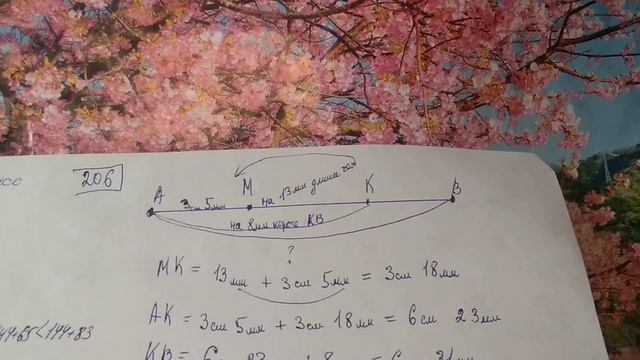 206
A M K B
3см 5мм на 13мм длиннее
на 8мм короче KB
?
MK = 13мм + 3см 5мм = 3см 18мм
AK = 3см 5мм + 3см 18мм = 6см 23мм
144+83
KB = 6см 23